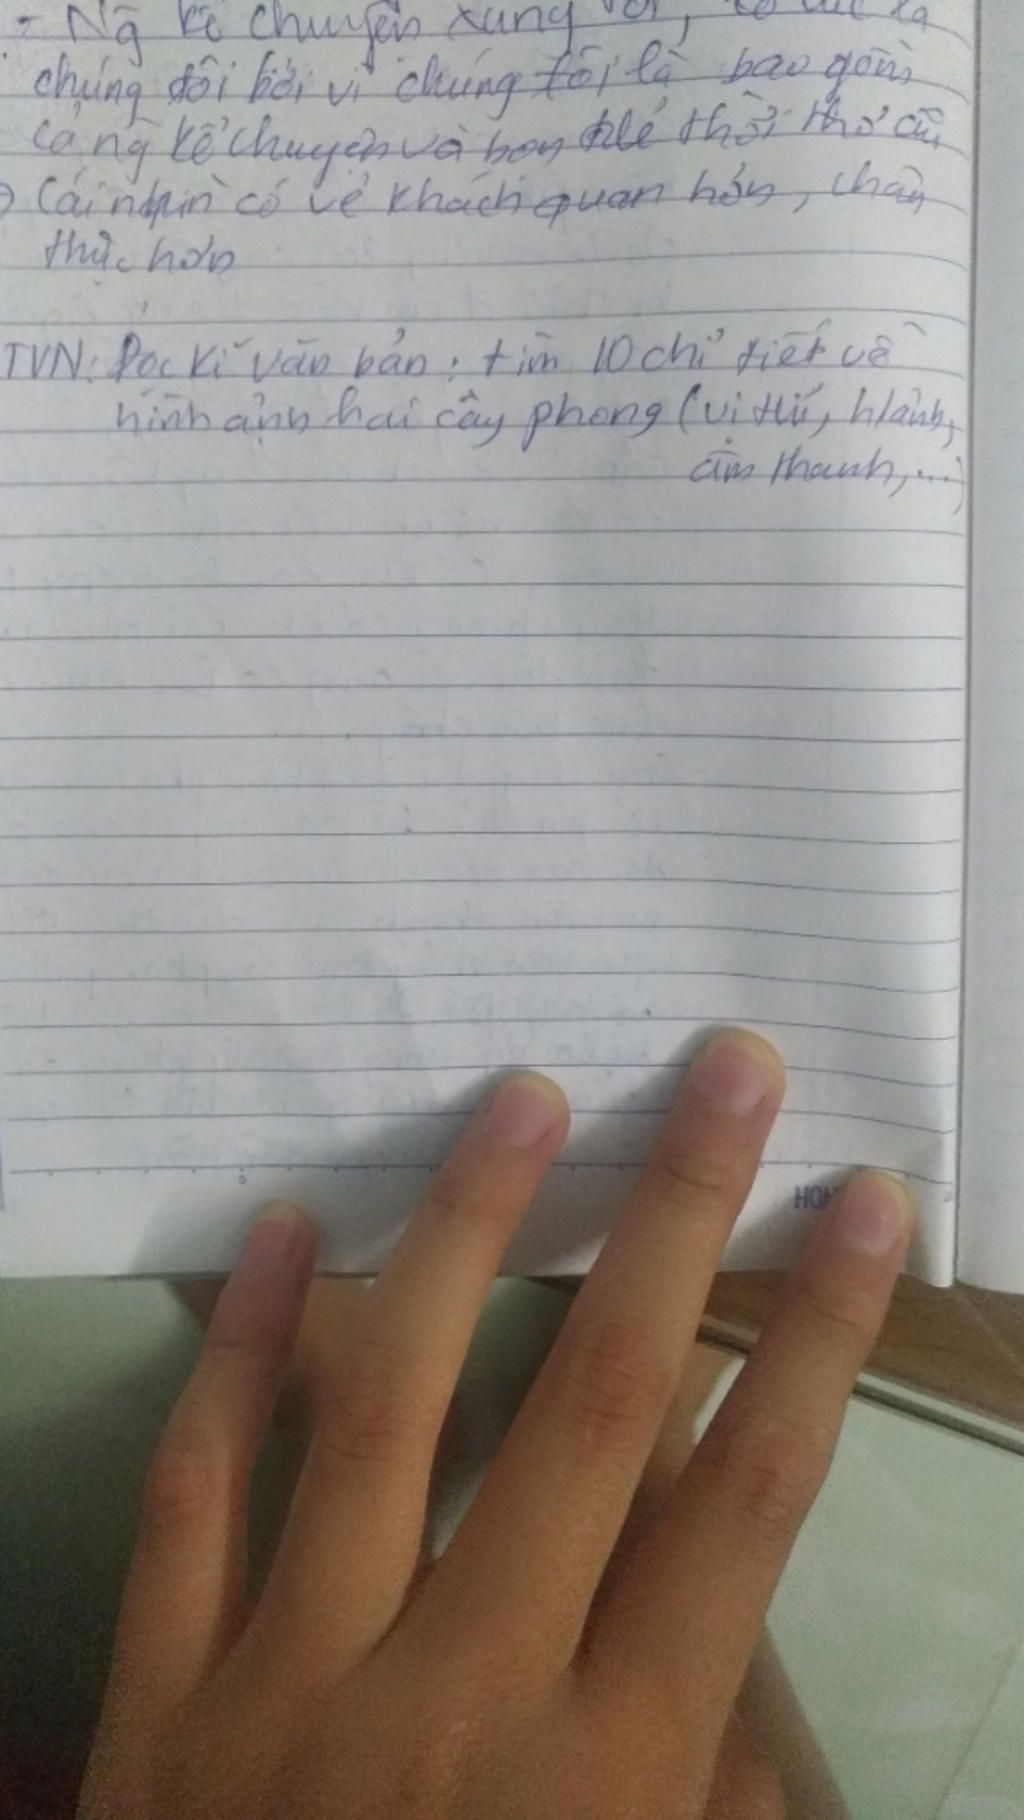 - Ng kể chuyện xưng tôi, có lúc là
chúng tôi bởi vì chúng tôi là bao gồm
cả ng kể chuyện và bọn trẻ thời thơ ấu
Cái nhìn có vẻ khách quan hơn, chân
thực hơn
TVN: Đọc kĩ văn bản: tìm 10 chi tiết về
hình ảnh hai cây phong (vị trí, h/ảnh,
âm thanh,...)